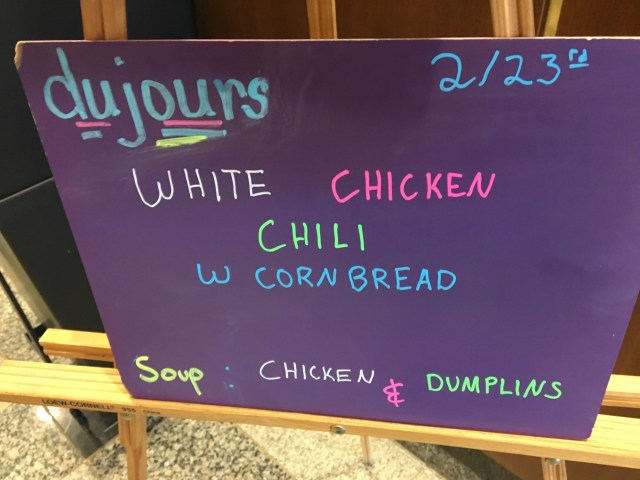 dujours 2/23rd
WHITE CHICKEN
CHILI
W CORN BREAD
Soup : CHICKEN & DUMPLINS
LOEW-CORNELL